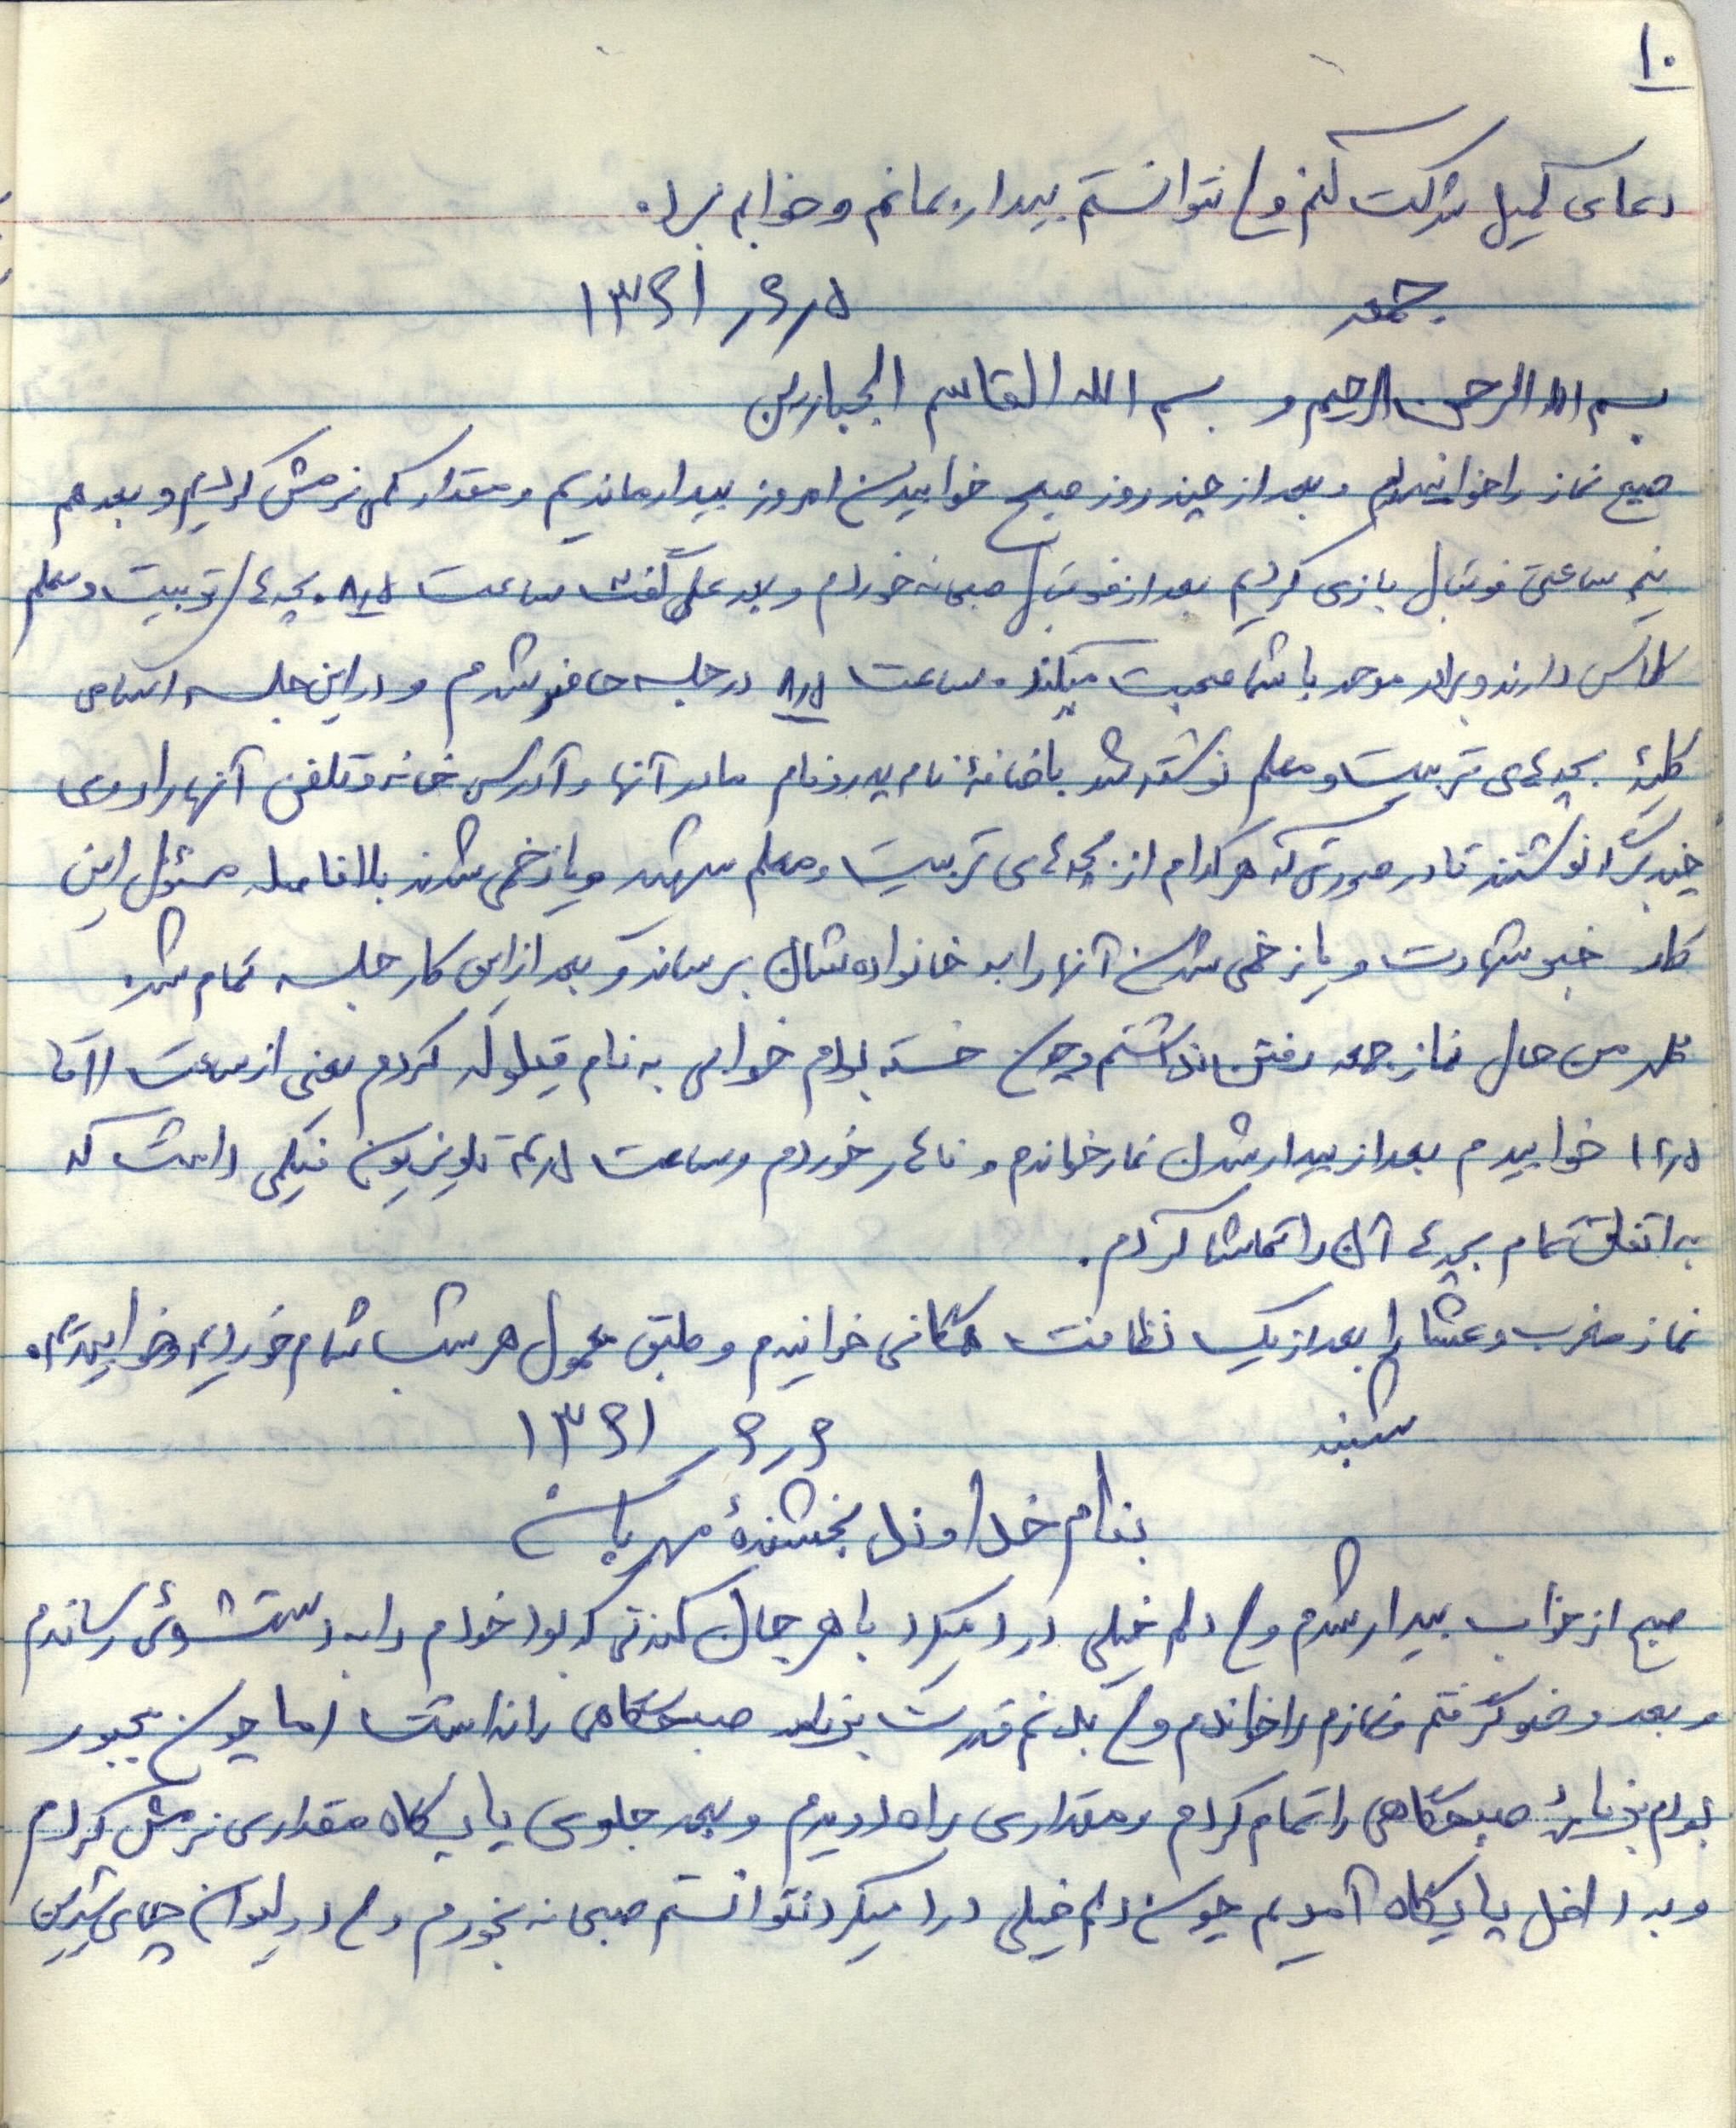 ۱۰
دعای کمیل شرکت کنم ولی نتوانستم بیدار بمانم و خوابم برد.
جمعه ۵ر۶ر۱۳۶۱
بسم الله الرحمن الرحیم و بسم الله القاسم الجبارین
صبح نماز را خواندیم و بعد از چند روز صبح خوابیدن امروز بیدار ماندیم و مقدار کمی نرمش کردیم و بعد هم
نیم ساعتی فوتبال بازی کردیم بعد از فوتبال صبحانه خوردم و برادر علی گفت ساعت ۸٫۵ بچه های تربیت و معلم
کلاس دارند و برادر موحد با شما صحبت میکند. ساعت ۸٫۵ در جلسه حاضر شدم و در این جلسه اسامی
کلیهٔ بچه های تربیت و معلم نوشته شد باضافهٔ نام پدر و نام مادر آنها و آدرس خانه و تلفن آنها را روی
چند برگه نوشتند تا در صورتی که هر کدام از بچه های تربیت و معلم شهید و یا زخمی شدند بلافاصله مسئول این
کار خبر شهادت و یا زخمی شدن آنها را به خانواده شان برساند و بعد از این کار جلسه تمام شد.
ظهر من حال نماز جمعه رفتن نداشتم و چون خسته بودم خوابی به نام قیلوله کردم یعنی از ساعت ۱۱ تا
۱۲٫۵ خوابیدم بعد از بیدار شدن نماز خواندم و ناهار خوردم و ساعت ۴٫۵ تلویزیون فیلمی داشت که
به اتفاق تمام بچه ها آن را تماشا کردم.
نماز مغرب و عشا را بعد از یک نظافت همگانی خواندیم و طبق معمول هر شب شام خوردیم و خوابیدیم.
شنبه ۶ر۶ر۱۳۶۱
بنام خداوند بخشندهٔ مهربان
صبح از خواب بیدار شدم ولی دلم خیلی درد میکرد با هر جان کندنی که بود خودم را به دستشوئی رساندم
و بعد وضو گرفتم نمازم را خواندم ولی بدنم قدرت برنامه صبحگاهی را نداشت اما چون مجبور
بودم برنامهٔ صبحگاهی را تمام کردم و مقداری راه دویدم و بعد جلوی پایگاه مقداری نرمش کردم
و به داخل پایگاه آمدیم چون دلم خیلی درد میکرد نتوانستم صبحانه بخورم ولی دو لیوان چای شیرین